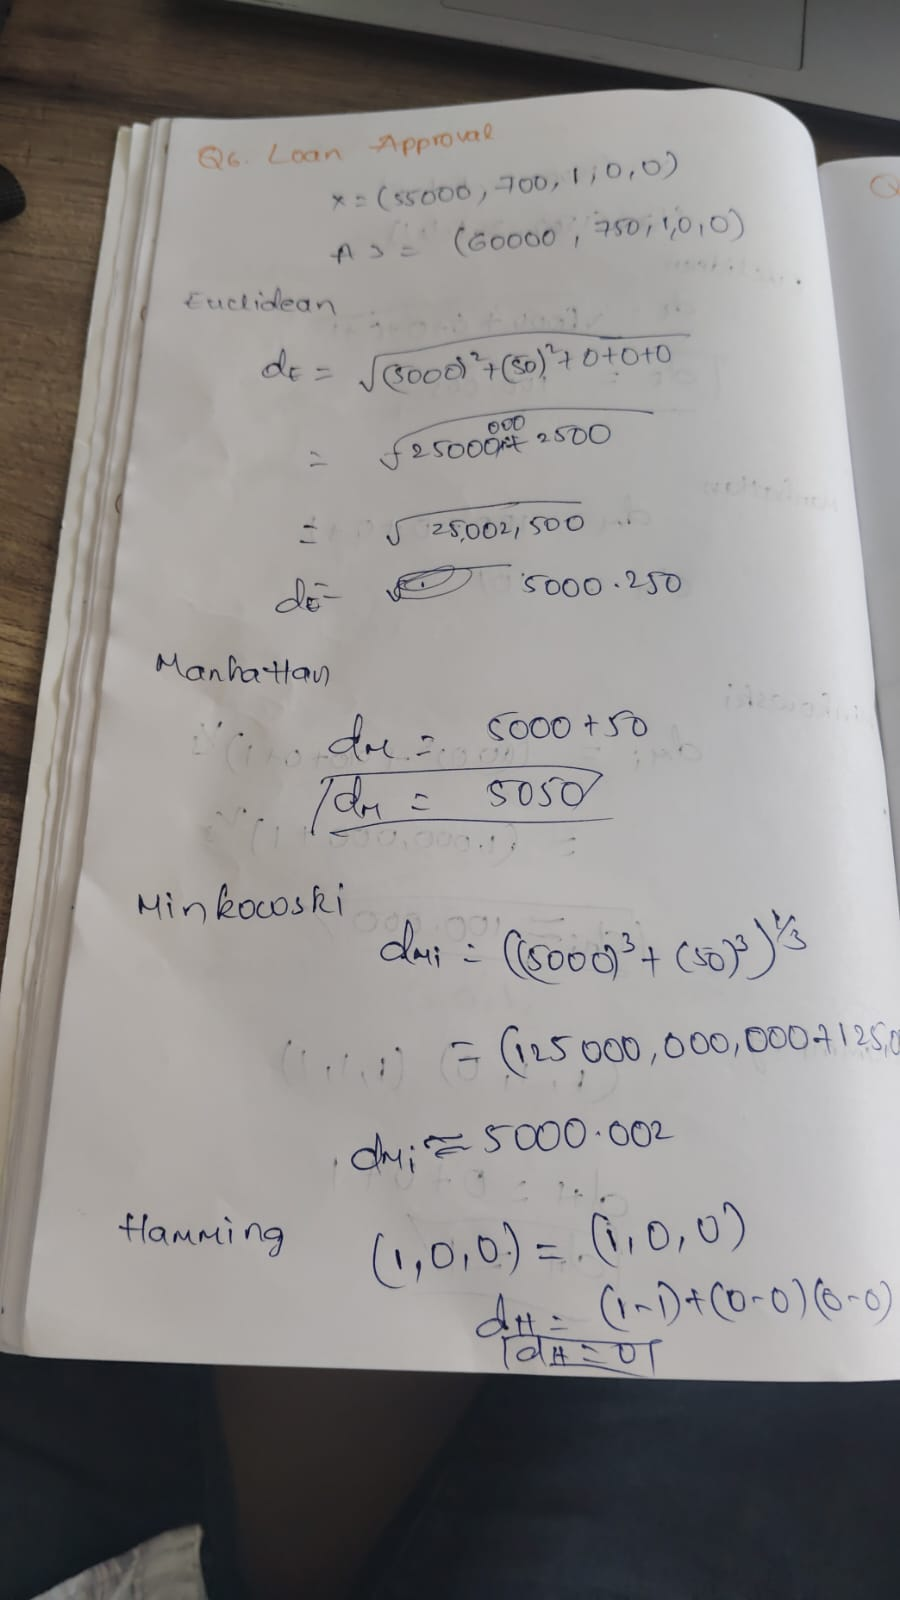 Q6. Loan Approval
x = (55000, 700, 1, 0, 0)
A3 = (60000, 750, 1, 0, 0)
Euclidean
dE = √(5000)² + (50)² + 0+0+0
= √25000000 + 2500
= √25,002,500
dE = 5000.250
Manhattan
dM = 5000 + 50
dM = 5050
Minkowoski
dMi = ((5000)³ + (50)³)^1/3
= (125000,000,000 + 125,0
dMi ≈ 5000.002
Hamming
(1,0,0) = (1,0,0)
dH = (1-1)+(0-0)(0-0)
dH = 0